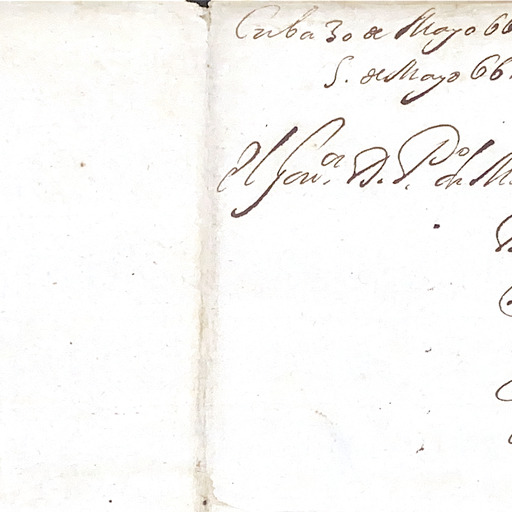 Cuba 30 de Mayo 66
5. de Mayo 66
el Gov.or D. P.o de M